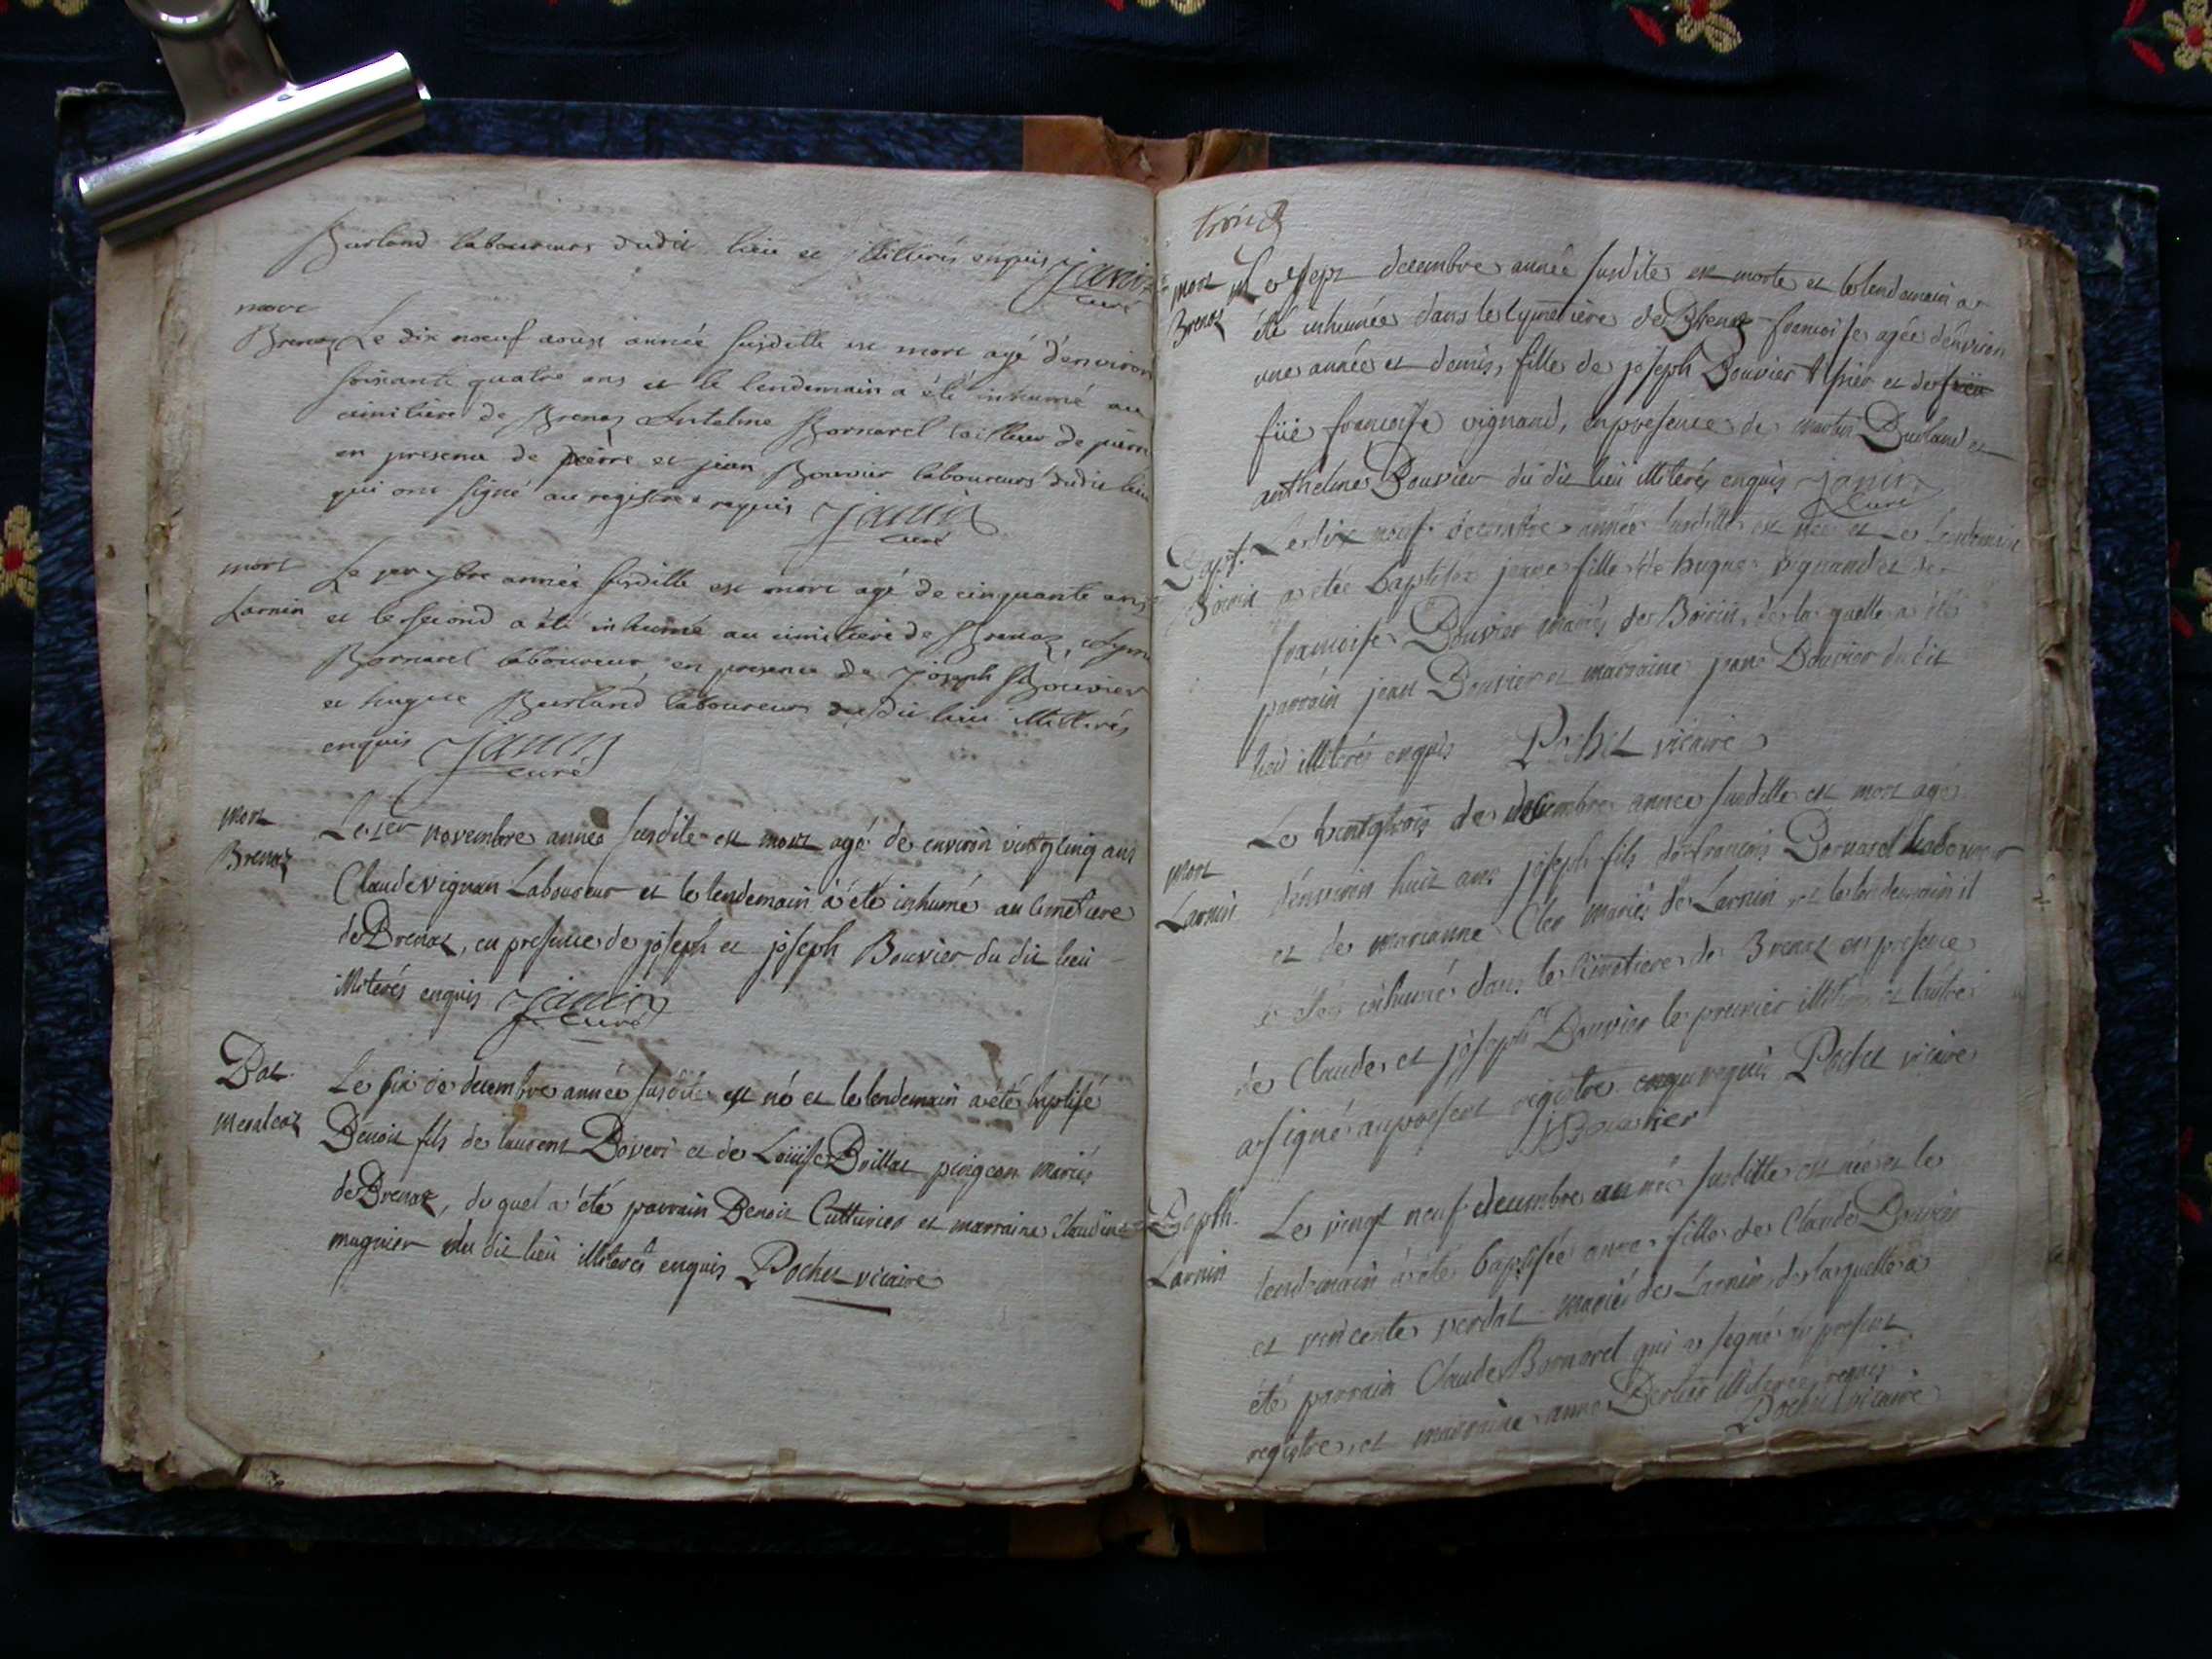 Burland laboureurs dudit lieu et illitérés enquis Janin
curé
mort
Brenaz Le dix neuf aoust année susditte est mort agé d'environ
soixante quatre ans et le lendemain a été inhumé au
cimitiére de Brenaz Antelme Bornarel tailleur de pierre
en presence de pierre et jean Bouvier laboureurs dudit lieu
qui ont signé au registre requis Janin
curé
mort Le per 7bre année susditte est mort agé de cinquante ans
Larnin et le second a été inhumé au cimitiere de Brenaz,
Bornarel laboureur en presence de Joseph Bouvier
et hugue Burland laboureurs du dit lieu illitterés
enquis Janin
curé
mort Le 1er novembre année susdite est mort agé de environ vingt cinq ans
Brenaz
Claude vignan Laboureur et le lendemain a été inhumé au cimetiere
de Brenaz, en presence de joseph et joseph Bouvier du dit lieu
illiterés enquis Janin
curé
Bat. Le six de decembre année susdite est né et le lendemain a été baptisé
Meraleaz Benoit fils de laurent Boveri et de Louise Brillat pingeon mariés
de Brenaz, du quel a été parrain Benoit Cutturier et marraine Claudine
mugnier du dit lieu illiterés enquis Pochet vicaire
mort Le sept decembre année susdite est morte et le lendemain a
Brenaz été inhumée dans le cymetiere de Brenaz francoise agée d'environ
une année et demis, fille de joseph Bouvier et de
füe francoise vignand, en presence de martin Burland et
anthelme Bouvier du dit lieu illiterés enquis janin
Curé
Bapt. Le dix neuf decembre année susditte est née et Le Lendemain
Boirin a etée baptisée jeane fille de hugue vignand et de
francoise Bouvier mariés de Boirin, de la quelle a été
parrain jean Bouvier et marraine jeane Bouvier du dit
lieu illiterés enquis Pochet vicaire
Le vingt trois de decembre annee susditte est mort agé
mort
Larnin d'environ huit ans joseph fils de francois Bornarel Laboureur
et de marianne Cler mariés de Larnin et le lendemain il
a été inhumé dans le cimetiere de Brenaz en presence
de Claude et joseph Bouvier le premier illiteré et l'autre
a signé au present registre requis Pochet vicaire
J Bouvier
Baptm. Le vingt neuf decembre année susditte est née et le
Larnin lendemain a été baptisée anne fille de Claude Bouvier
et vincente verdat mariés de Larnin, de laquelle a
été parrain Claude Bornarel qui a segné au present
registre, et marraine anne Berlier illiterée requis
Pochet vicaire